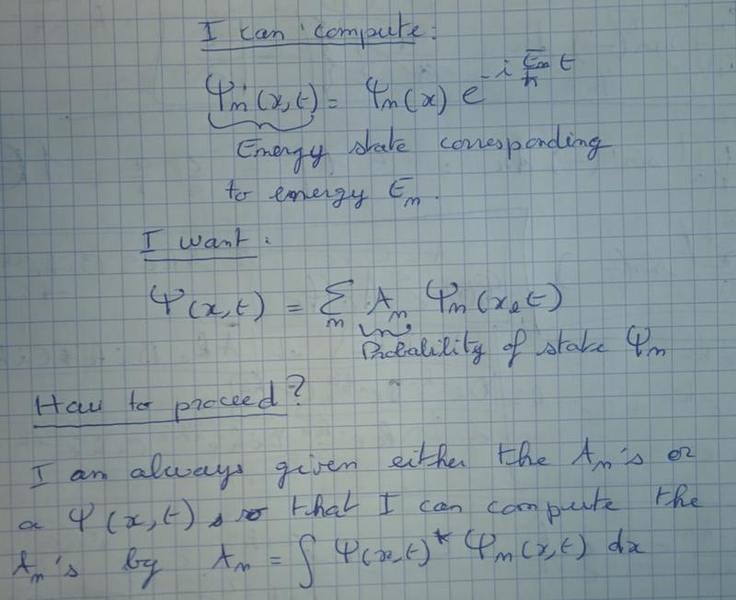 I can compute:
Ψn(x,t) = Ψn(x) e^{-i En/ħ t}
Energy state corresponding
to energy En.
I want:
Ψ(x,t) = Σn An Ψn(x,t)
Probability of state Ψn
How to proceed?
I am always given either the An's or
a Ψ(x,t) so that I can compute the
An's by An = ∫ Ψ(x,t)* Ψn(x,t) dx